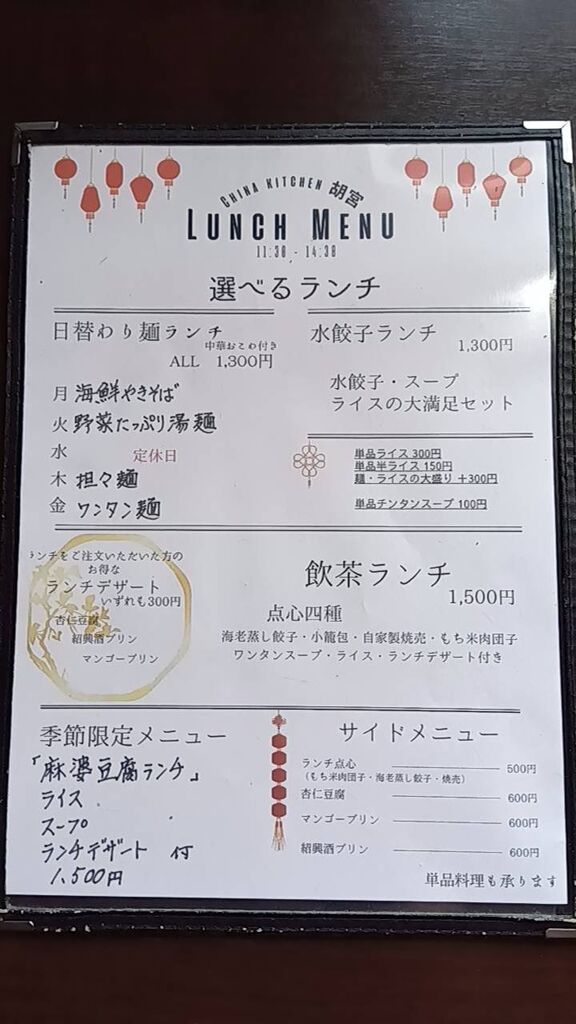 CHINA KITCHEN 胡宮
LUNCH MENU
11:30 - 14:30
選べるランチ
日替わり麺ランチ
中華おこわ付き
ALL 1,300円
月 海鮮やきそば
火 野菜たっぷり湯麺
水 定休日
木 担々麺
金 ワンタン麺
水餃子ランチ
1,300円
水餃子・スープ
ライスの大満足セット
単品ライス 300円
単品半ライス 150円
麺・ライスの大盛り +300円
単品チンタンスープ 100円
ランチをご注文いただいた方の
お得な
ランチデザート
いずれも300円
杏仁豆腐
紹興酒プリン
マンゴープリン
飲茶ランチ
1,500円
点心四種
海老蒸し餃子・小籠包・自家製焼売・もち米肉団子
ワンタンスープ・ライス・ランチデザート付き
季節限定メニュー
「麻婆豆腐ランチ」
ライス
スープ
ランチデザート 付
1,500円
サイドメニュー
ランチ点心 500円
(もち米肉団子・海老蒸し餃子・焼売)
杏仁豆腐 600円
マンゴープリン 600円
紹興酒プリン 600円
単品料理も承ります